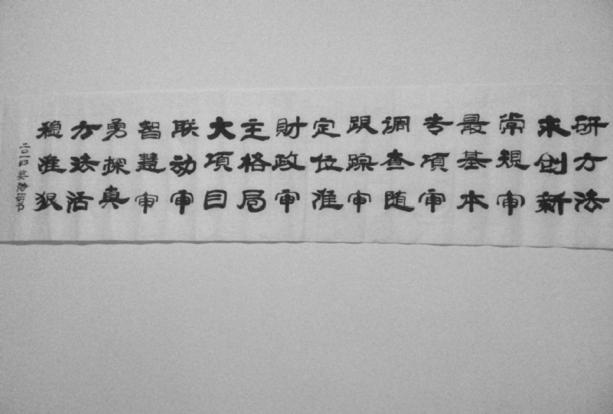 研方法
来创新
常规审
最基本
专项审
调查随
跟踪审
定位准
财政审
主格局
大项目
联动审
智慧审
勇探真
方法活
稳准狠